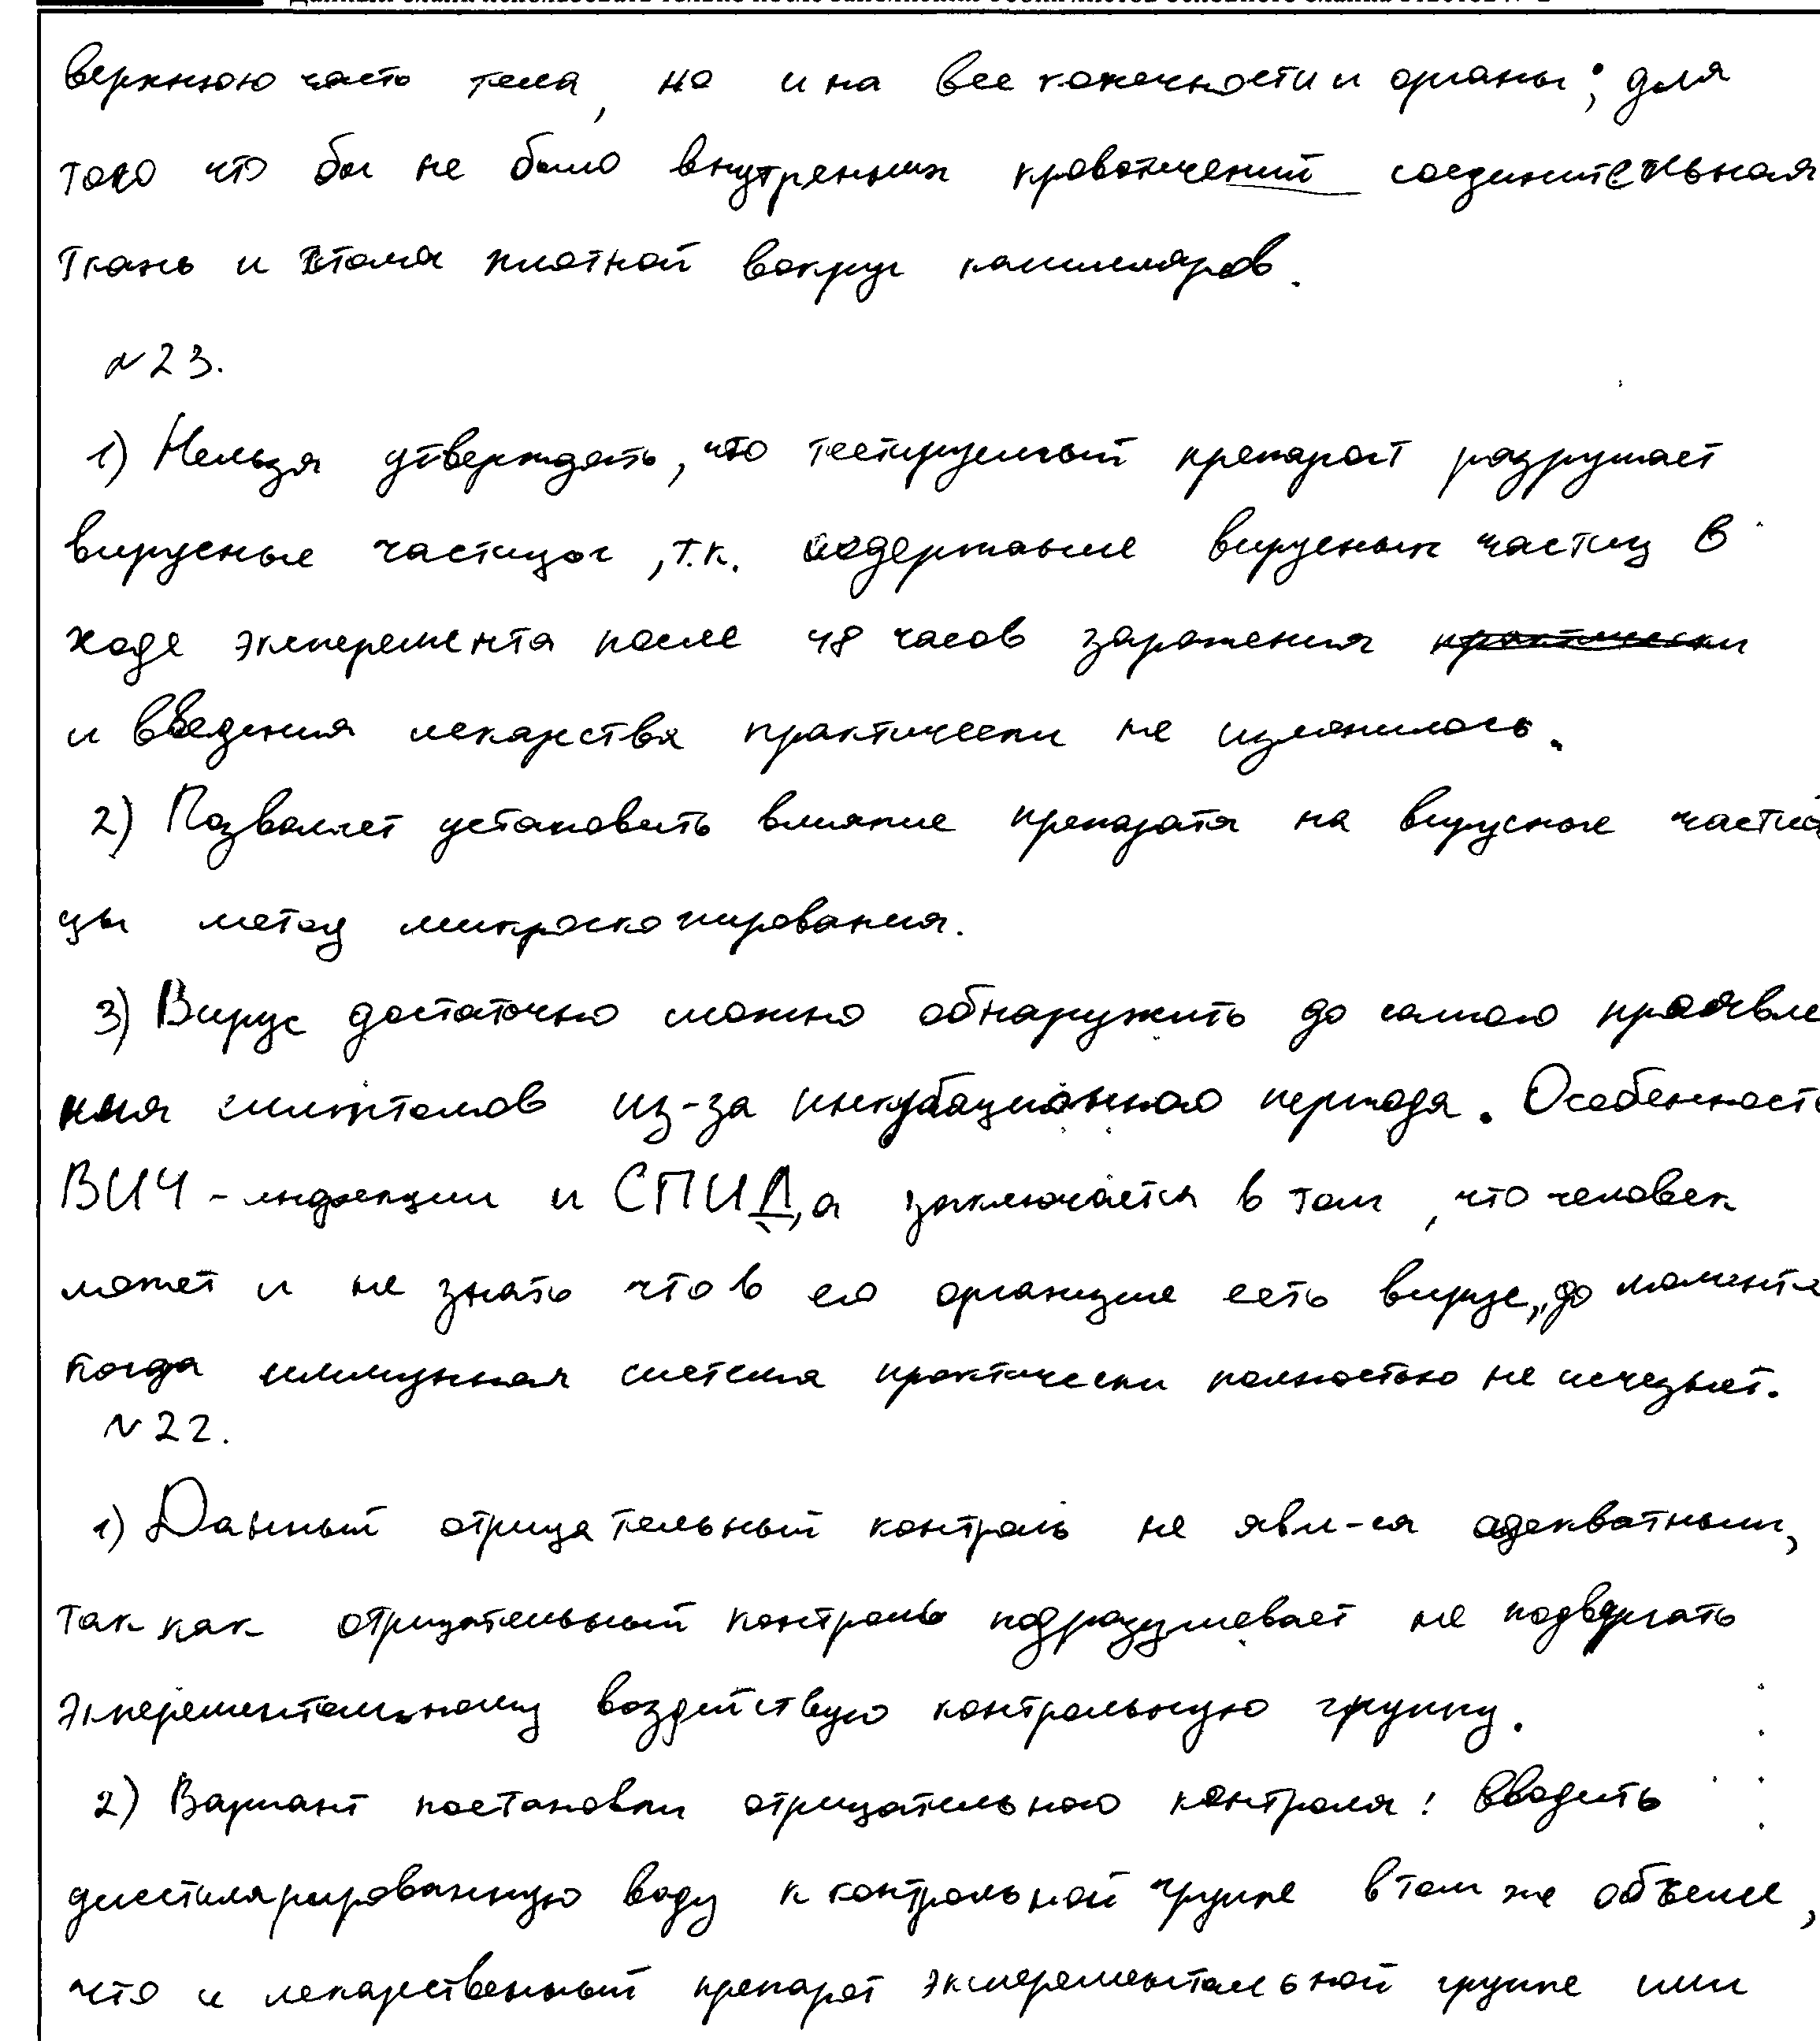 верхнюю часть тела, но и на все конечности и органы; для
того что бы не было внутренних кровотечений соединительная
ткань и стала плотной вокруг капилляров.
№23.
1) Нельзя утверждать, что тестируемый препарат разрушает
вирусные частицы, т.к. содержание вирусных частиц в
ходе эксперемента после 48 часов заражения практически
и введения лекарства практически не изменилось.
2) Позволяет установить влияние препарата на вирусные части
цы метод микроскопирования.
3) Вирус достаточно можно обнаружить до самого проявле
ния симптомов из-за инкубационного периода. Особенность
ВИЧ-инфекции и СПИД,а заключается в том, что человек
может и не знать что в его организме есть вирус, до момента
когда иммунная система практически полностью не исчезнет.
№22.
1) Данный отрицательный контроль не явл-ся адекватным,
так как отрицательный контроль подразумевает не подвергать
эксперементальному воздействую контрольную группу.
2) Вариант постановки отрицательного контроля: вводить
дистилярированную воду к контрольной группе в том же объеме,
что и лекарственный препарат эксперементальной группе или